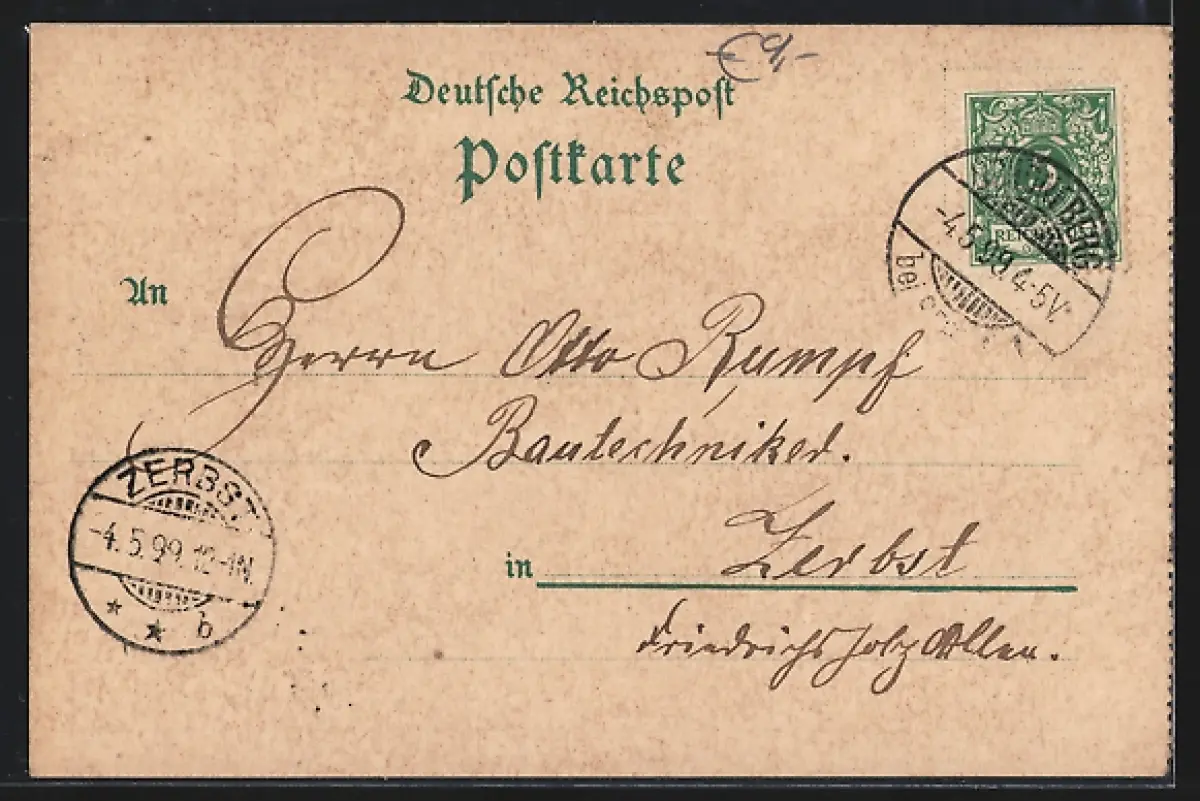 Deutsche Reichspost
Postkarte
An
Herrn Otto Rumpf
Bautechniker.
in Zerbst
Friedrichsholz Allee.
ZERBST
-4.5.99.12-1N.
* * b
BERG
-4.5.99.4-5V.
bei
REI